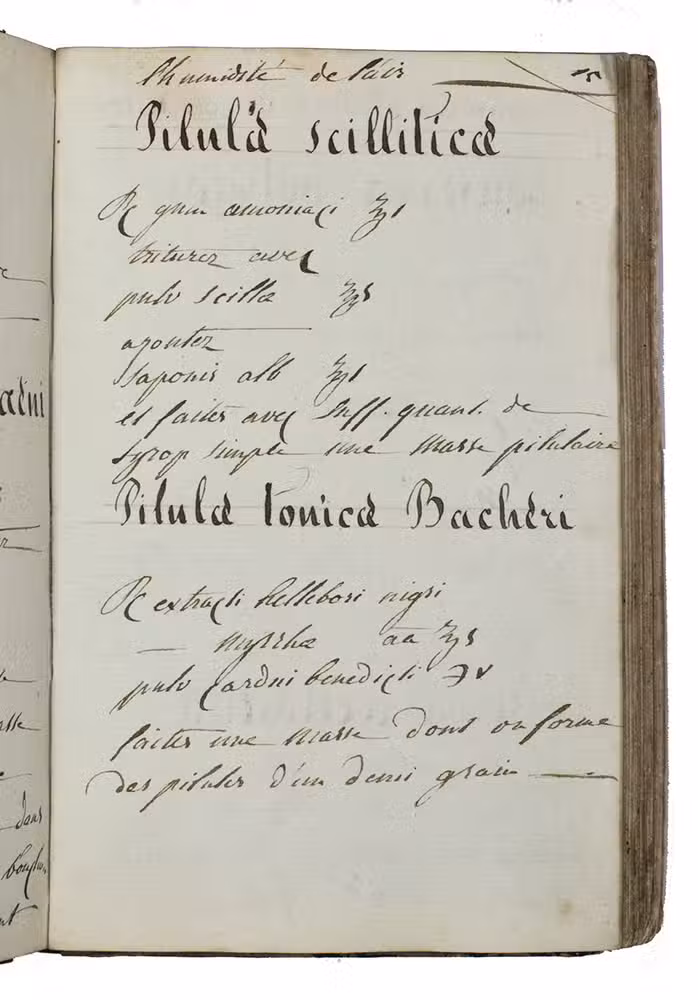 l'humidité de l'air
Pilulæ scilliticæ
℞ gum amoniaci ℥j
triturez avec
pulv scillæ ℥ß
ajoutez
saponis alb ℥j
et faites avec suff. quant. de
syrop simple une masse pilulaire
Pilulæ tonicæ Bacheri
℞ extracti hellebori nigri
— myrrhæ aa ℥ß
pulv cardui benedicti ℈v
faites une masse dont on forme
des pilules d'un demi grain —
dans